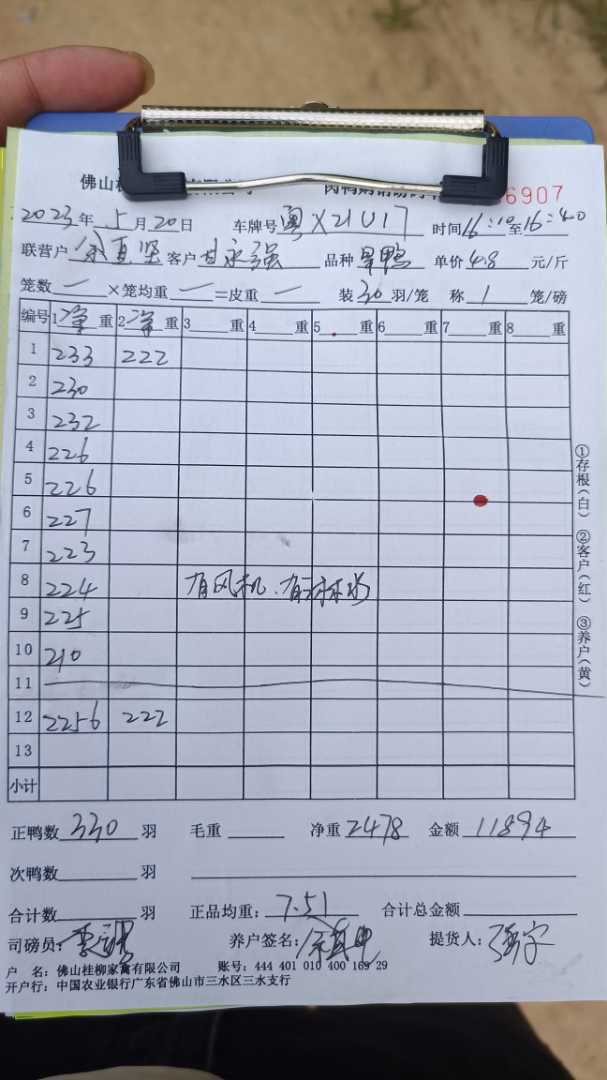 佛山桂
6907
2023年 5月20日 车牌号粤X21U17 时间16:10至16:40
联营户余真坚 客户甘永强 品种 鸭 单价4.8 元/斤
笼数一×笼均重一=皮重一 装30羽/笼 称1笼/磅
编号 1净重 2净重 3重 4重 5重 6重 7重 8重
1 233 222
2 230
3 232
4 226
5 226
6 227
7 223
8 224 有风机、有淋水
9 225
10 210
11
12 2256 222
13
小计
①存根(白) ②客户(红) ③养户(黄)
正鸭数330羽 毛重 净重2478 金额11894
次鸭数 羽
合计数 羽 正品均重:7.51 合计总金额
司磅员: 养户签名: 提货人:
户 名:佛山桂柳家禽有限公司 账号:444 401 010 400 169 29
开户行:中国农业银行广东省佛山市三水区三水支行